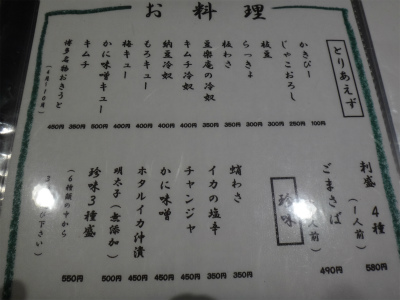 お料理
とりあえず
かきぴー 100円
じゃこおろし 250円
枝豆 300円
らっきょ 300円
板わさ 350円
の冷奴 350円
キムチ冷奴 400円
納豆冷奴 400円
もろキュー 400円
梅キュー 400円
かに味噌キュー 500円
キムチ 350円
博多名物おきうと 450円
(4月~10月)
刺盛 4種 580円
(一人前)
ごまさば 490円
(一人前)
珍味
蛸わさ 350円
イカの塩辛 350円
チャンジャ 450円
かに味噌 450円
ホタルイカ沖漬 450円
明太子(無添加) 500円
珍味3種盛 550円
(6種類の中から
下さい)